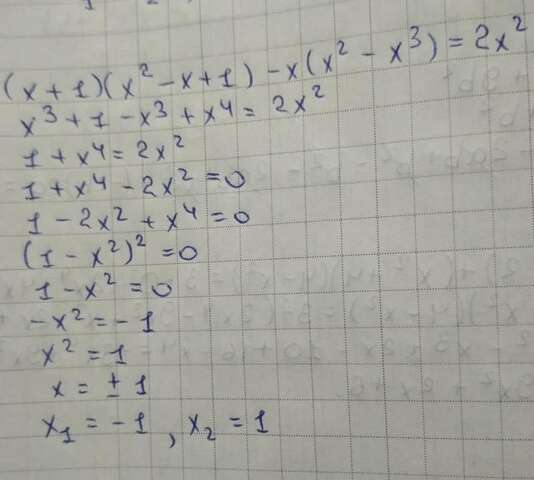 (x+1)(x² - x + 1) - x(x² - x³) = 2x²
x³ + 1 - x³ + x⁴ = 2x²
1 + x⁴ = 2x²
1 + x⁴ - 2x² = 0
1 - 2x² + x⁴ = 0
(1 - x²)² = 0
1 - x² = 0
-x² = -1
x² = 1
x = ± 1
x₁ = -1, x₂ = 1